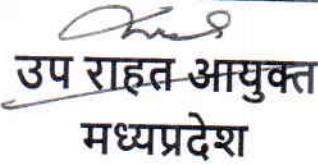 उप राहत आयुक्त
मध्यप्रदेश